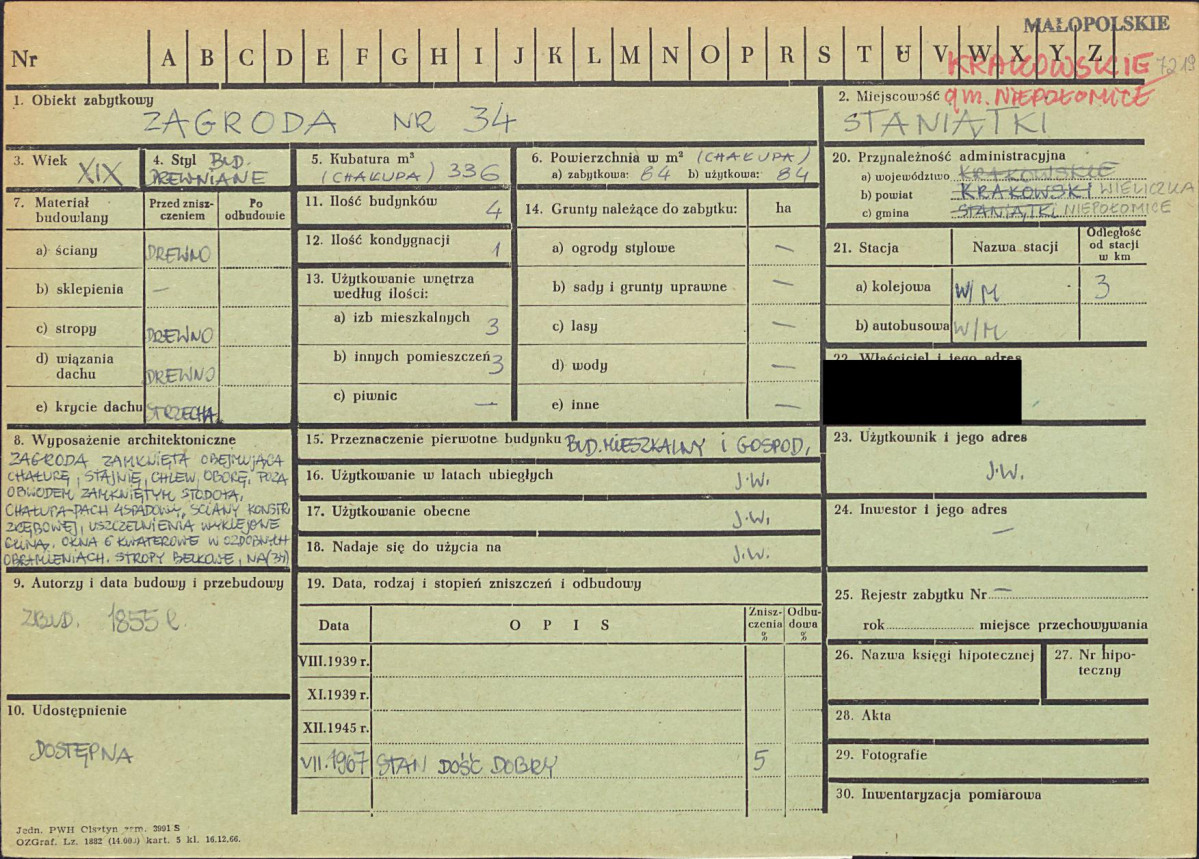 MAŁOPOLSKIE
Nr A B C D E F G H I J K L M N O P R S T U V W X Y Z
KRAKOWSKIE
gm. NIEPOŁOMICE
1. Obiekt zabytkowy
ZAGRODA NR 34
2. Miejscowość
STANIĄTKI
3. Wiek
XIX
4. Styl BUD.
DREWNIANE
5. Kubatura m³
(CHAŁUPA) 336
6. Powierzchnia w m² (CHAŁUPA)
a) zabytkowa: 84 b) użytkowa: 84
7. Materiał budowlany
Przed zniszczeniem
Po odbudowie
a) ściany DREWNO
b) sklepienia —
c) stropy DREWNO
d) wiązania dachu DREWNO
e) krycie dachu STRZECHA
8. Wyposażenie architektoniczne
ZAGRODA ZAMKNIĘTA OBEJMUJĄCA
CHAŁUPĘ, STAJNIĘ, CHLEW, OBORĘ, POZA
OBWODEM ZAMKNIĘTYM STODOŁA.
CHAŁUPA-DACH 4SPADOWY, ŚCIANY KONSTR.
ZRĘBOWEJ, USZCZELNIENIA WYKLEJONE
GLINĄ. OKNA 6 KWATEROWE W OZDOBNYCH
OBRAMIENIACH. STROPY BELKOWE, NA(34)
9. Autorzy i data budowy i przebudowy
ZBUD. 1855 r.
10. Udostępnienie
DOSTĘPNA
11. Ilość budynków 4
12. Ilość kondygnacji 1
13. Użytkowanie wnętrza
według ilości:
a) izb mieszkalnych 3
b) innych pomieszczeń 3
c) piwnic —
14. Grunty należące do zabytku: ha
a) ogrody stylowe —
b) sady i grunty uprawne —
c) lasy —
d) wody —
e) inne —
15. Przeznaczenie pierwotne budynku BUD. MIESZKALNY I GOSPOD.
16. Użytkowanie w latach ubiegłych J.W.
17. Użytkowanie obecne J.W.
18. Nadaje się do użycia na J.W.
19. Data, rodzaj i stopień zniszczeń i odbudowy
Data OPIS Zniszczenia % Odbudowa %
VIII.1939 r.
XI.1939 r.
XII.1945 r.
VII.1967 STAN DOŚĆ DOBRY 5
20. Przynależność administracyjna
a) województwo KRAKOWSKIE
b) powiat KRAKOWSKI WIELICZKA
c) gmina STANIĄTKI NIEPOŁOMICE
21. Stacja Nazwa stacji Odległość od stacji w km
a) kolejowa W/M 3
b) autobusowa W/M
22. Właściciel i jego adres
23. Użytkownik i jego adres
J.W.
24. Inwestor i jego adres
—
25. Rejestr zabytku Nr —
rok miejsce przechowywania
26. Nazwa księgi hipotecznej
27. Nr hipoteczny
28. Akta
29. Fotografie
30. Inwentaryzacja pomiarowa
Jedn. PWH Olsztyn zam. 3991 S
OZGraf. Lz. 1882 (14.000) kart. 5 kl. 16.12.66.